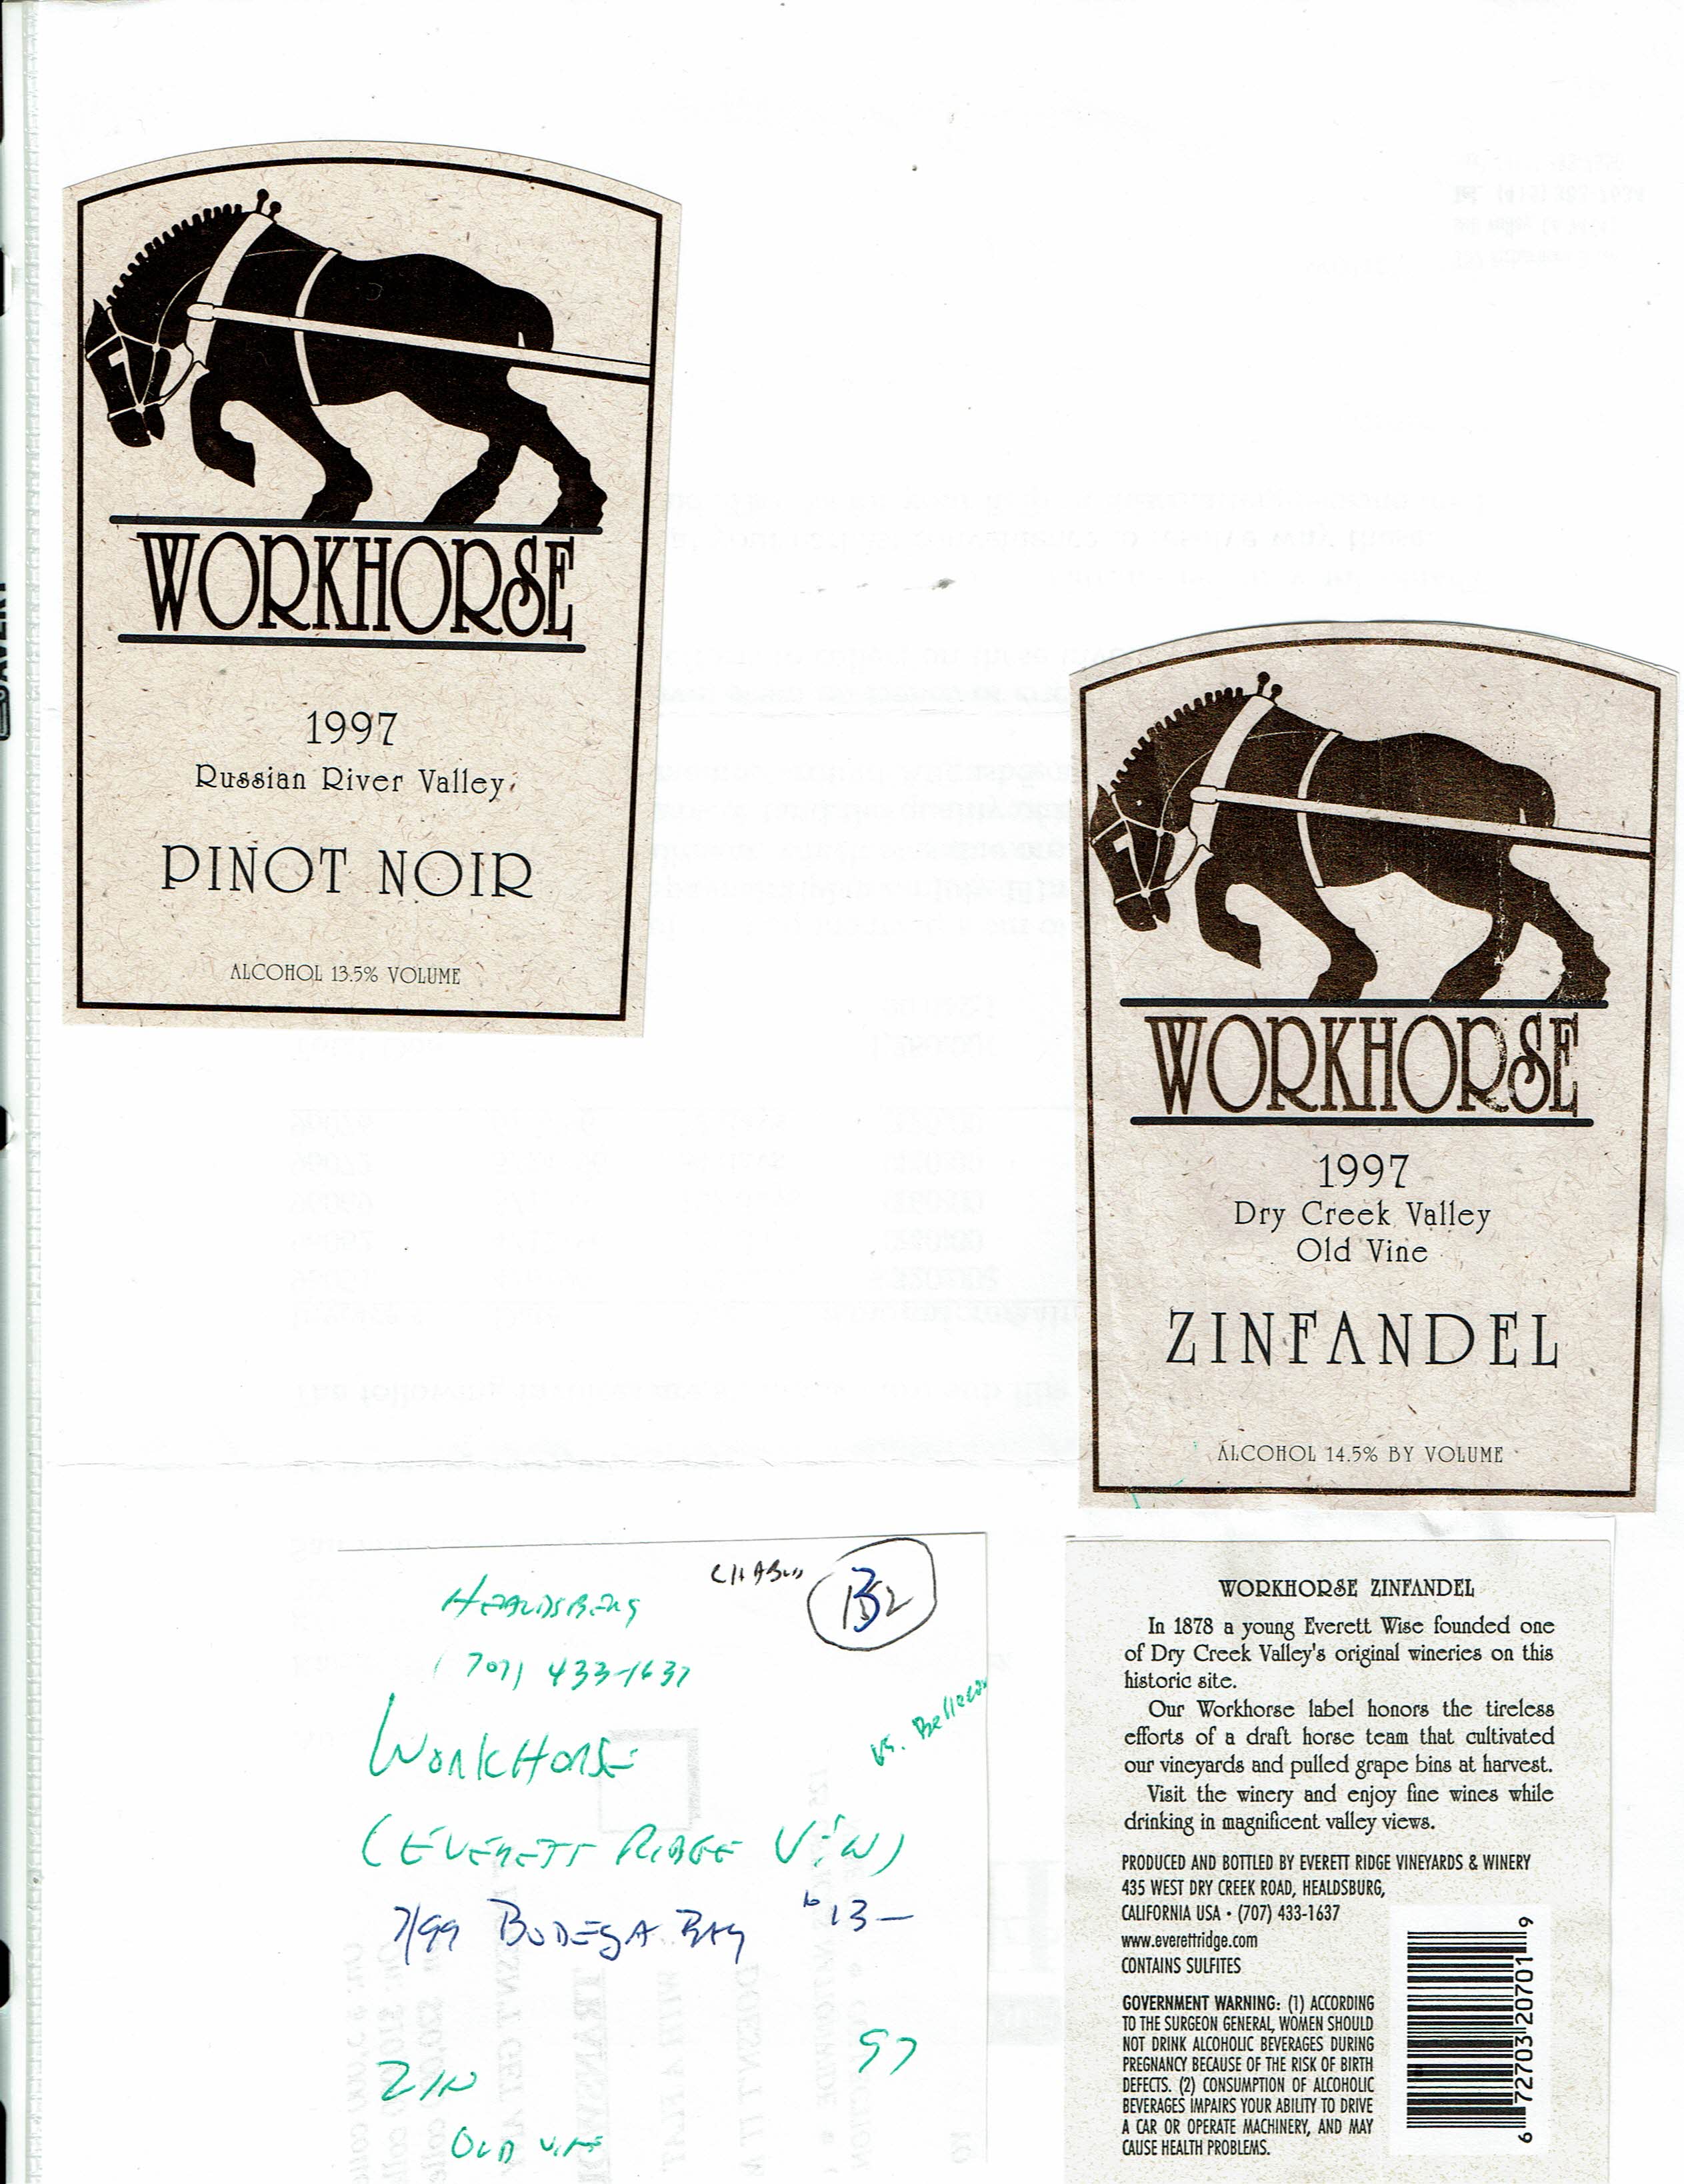 WORKHORSE
1997
Russian River Valley
PINOT NOIR
ALCOHOL 13.5% VOLUME
WORKHORSE
1997
Dry Creek Valley
Old Vine
ZINFANDEL
ALCOHOL 14.5% BY VOLUME
HEALDSBERG
(707) 433-1637
WORKHORSE
(EVERETT RIDGE VIEW)
7/99 BODEGA BAY $13—
97
ZIN
OLD VINE
WORKHORSE ZINFANDEL
In 1878 a young Everett Wise founded one
of Dry Creek Valley's original wineries on this
historic site.
Our Workhorse label honors the tireless
efforts of a draft horse team that cultivated
our vineyards and pulled grape bins at harvest.
Visit the winery and enjoy fine wines while
drinking in magnificent valley views.
PRODUCED AND BOTTLED BY EVERETT RIDGE VINEYARDS & WINERY
435 WEST DRY CREEK ROAD, HEALDSBURG,
CALIFORNIA USA • (707) 433-1637
www.everettridge.com
CONTAINS SULFITES
GOVERNMENT WARNING: (1) ACCORDING
TO THE SURGEON GENERAL, WOMEN SHOULD
NOT DRINK ALCOHOLIC BEVERAGES DURING
PREGNANCY BECAUSE OF THE RISK OF BIRTH
DEFECTS. (2) CONSUMPTION OF ALCOHOLIC
BEVERAGES IMPAIRS YOUR ABILITY TO DRIVE
A CAR OR OPERATE MACHINERY, AND MAY
CAUSE HEALTH PROBLEMS.
6 72703 20701 9